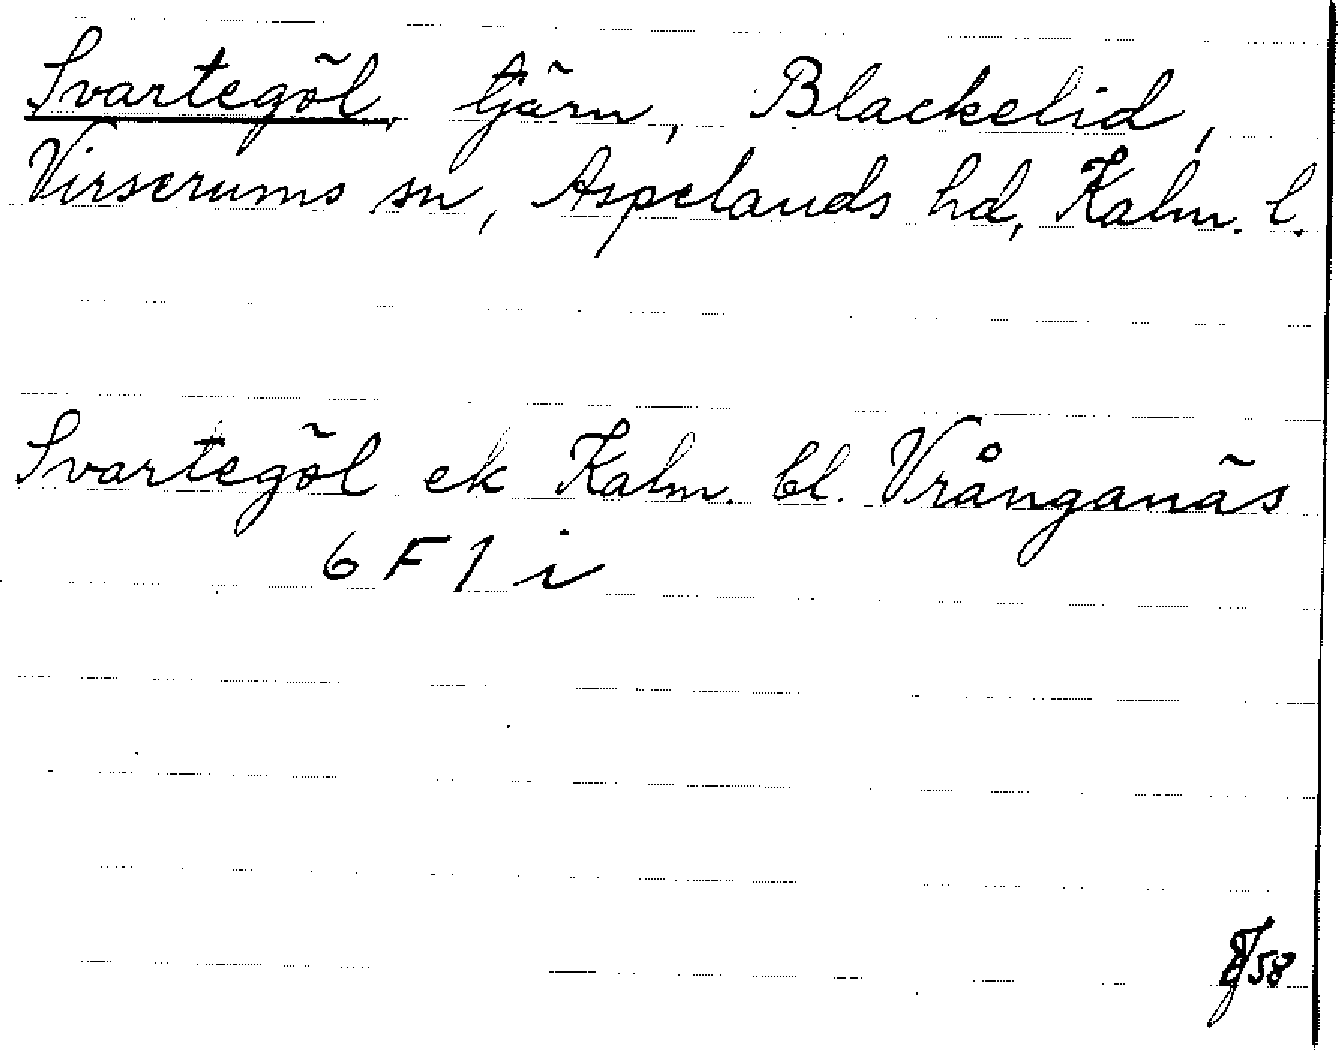 Svartegöl, tjärn, Blackelid,
Virserums sn, Aspelands hd, Kalm. l.
Svartegöl ek Kalm. bl. Vrånganäs
6 F 1 i
58